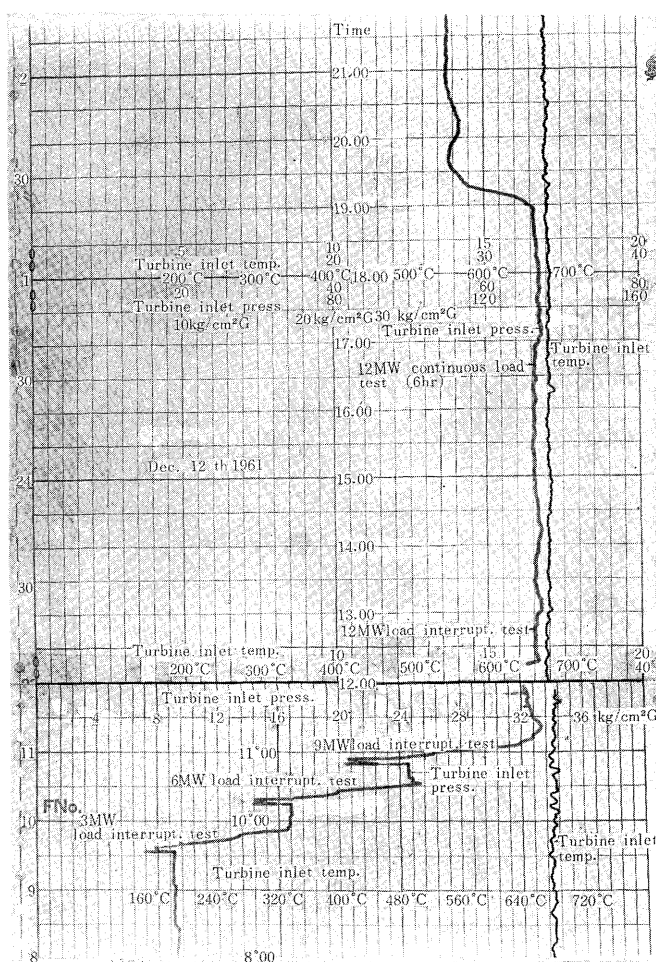 Time
2
21.00
20.00
30
19.00
5 10 15 20
20 30 40
Turbine inlet temp.
1 200°C 300°C 400°C 18.00 500°C 600°C 700°C
20 40 60 80
Turbine inlet press. 80 120 160
10kg/cm²G 20kg/cm²G 30 kg/cm²G
Turbine inlet press.
17.00
Turbine inlet
temp.
12MW continuous load
test (6hr)
30
16.00
Dec. 12 th 1961
24
15.00
14.00
30
13.00
12MW load interrupt. test
Turbine inlet temp.
10 15 20
200°C 300°C 400°C 500°C 600°C 700°C 40
12.00
Turbine inlet press.
4 8 12 16 20 24 28 32 36 kg/cm²G
9MW load interrupt. test
11 11°00
6MW load interrupt. test
Turbine inlet
press.
FNo.
10 10°00
3MW
load interrupt. test
Turbine inlet
temp.
Turbine inlet temp.
9
160°C 240°C 320°C 400°C 480°C 560°C 640°C 720°C
8 8°00